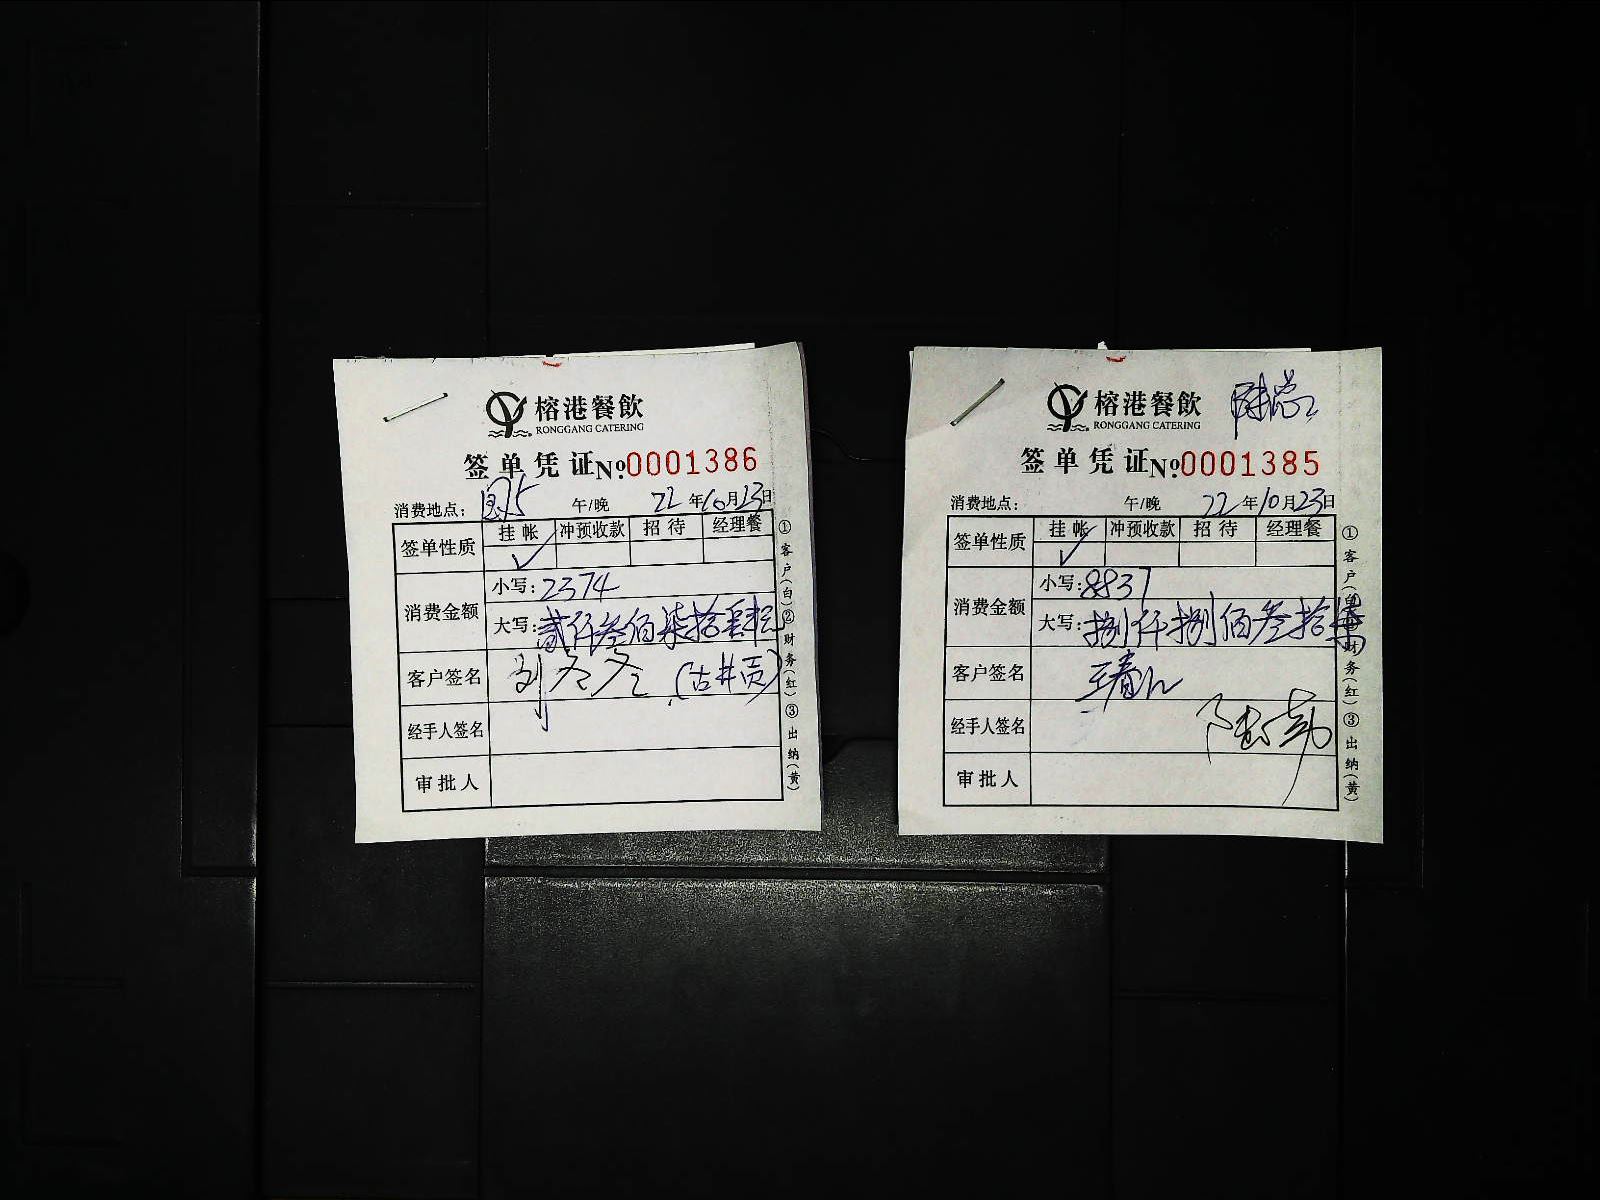 榕港餐飲
RONGGANG CATERING
签单凭证 No 0001386
消费地点: 午/晚 22年10月23日
签单性质 挂帐 冲预收款 招待 经理餐
✓
消费金额 小写: 2374
大写: 贰仟叁佰柒拾肆
客户签名 刘冬冬 (古井贡)
经手人签名
审批人
①客户(白)②财务(红)③出纳(黄)
榕港餐飲
RONGGANG CATERING
签单凭证 No 0001385
消费地点: 午/晚 22年10月23日
签单性质 挂帐 冲预收款 招待 经理餐
✓
消费金额 小写: 8837
大写: 捌仟捌佰叁拾柒
客户签名
经手人签名
审批人
①客户(白)②财务(红)③出纳(黄)